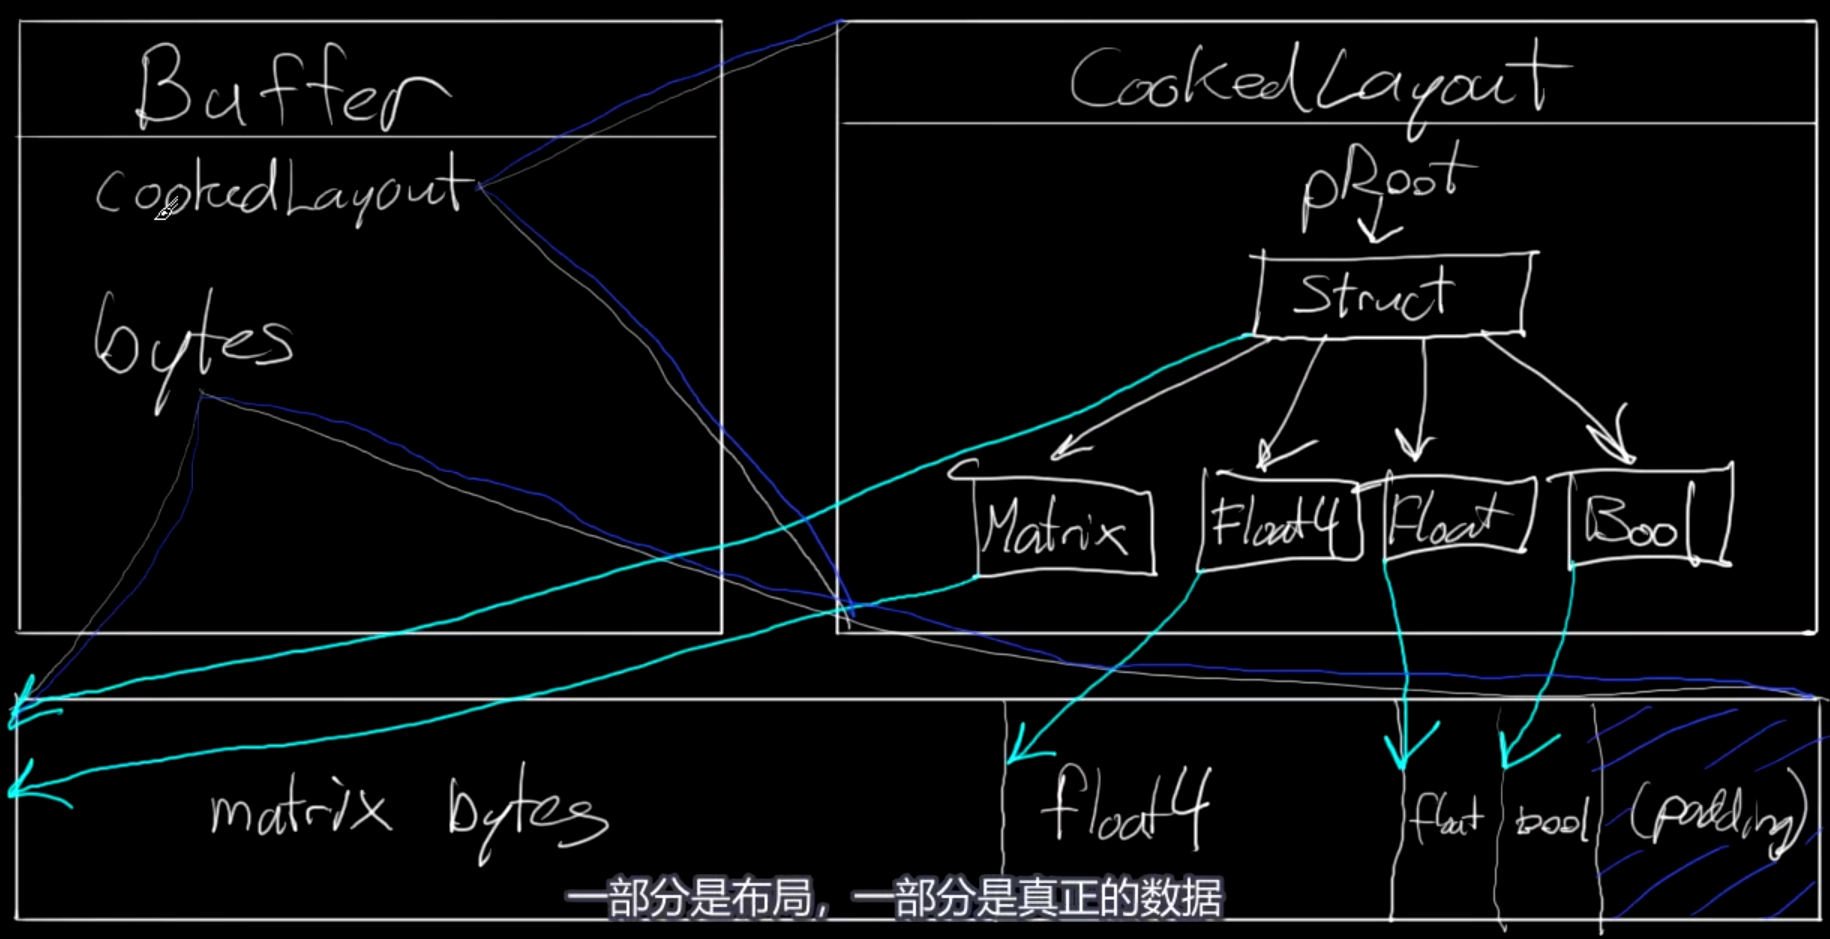 Buffer
CookedLayout
bytes
CookedLayout
pRoot
Struct
Matrix
Float4
Float
Bool
matrix bytes
float4
float
bool
(padding)
一部分是布局，一部分是真正的数据